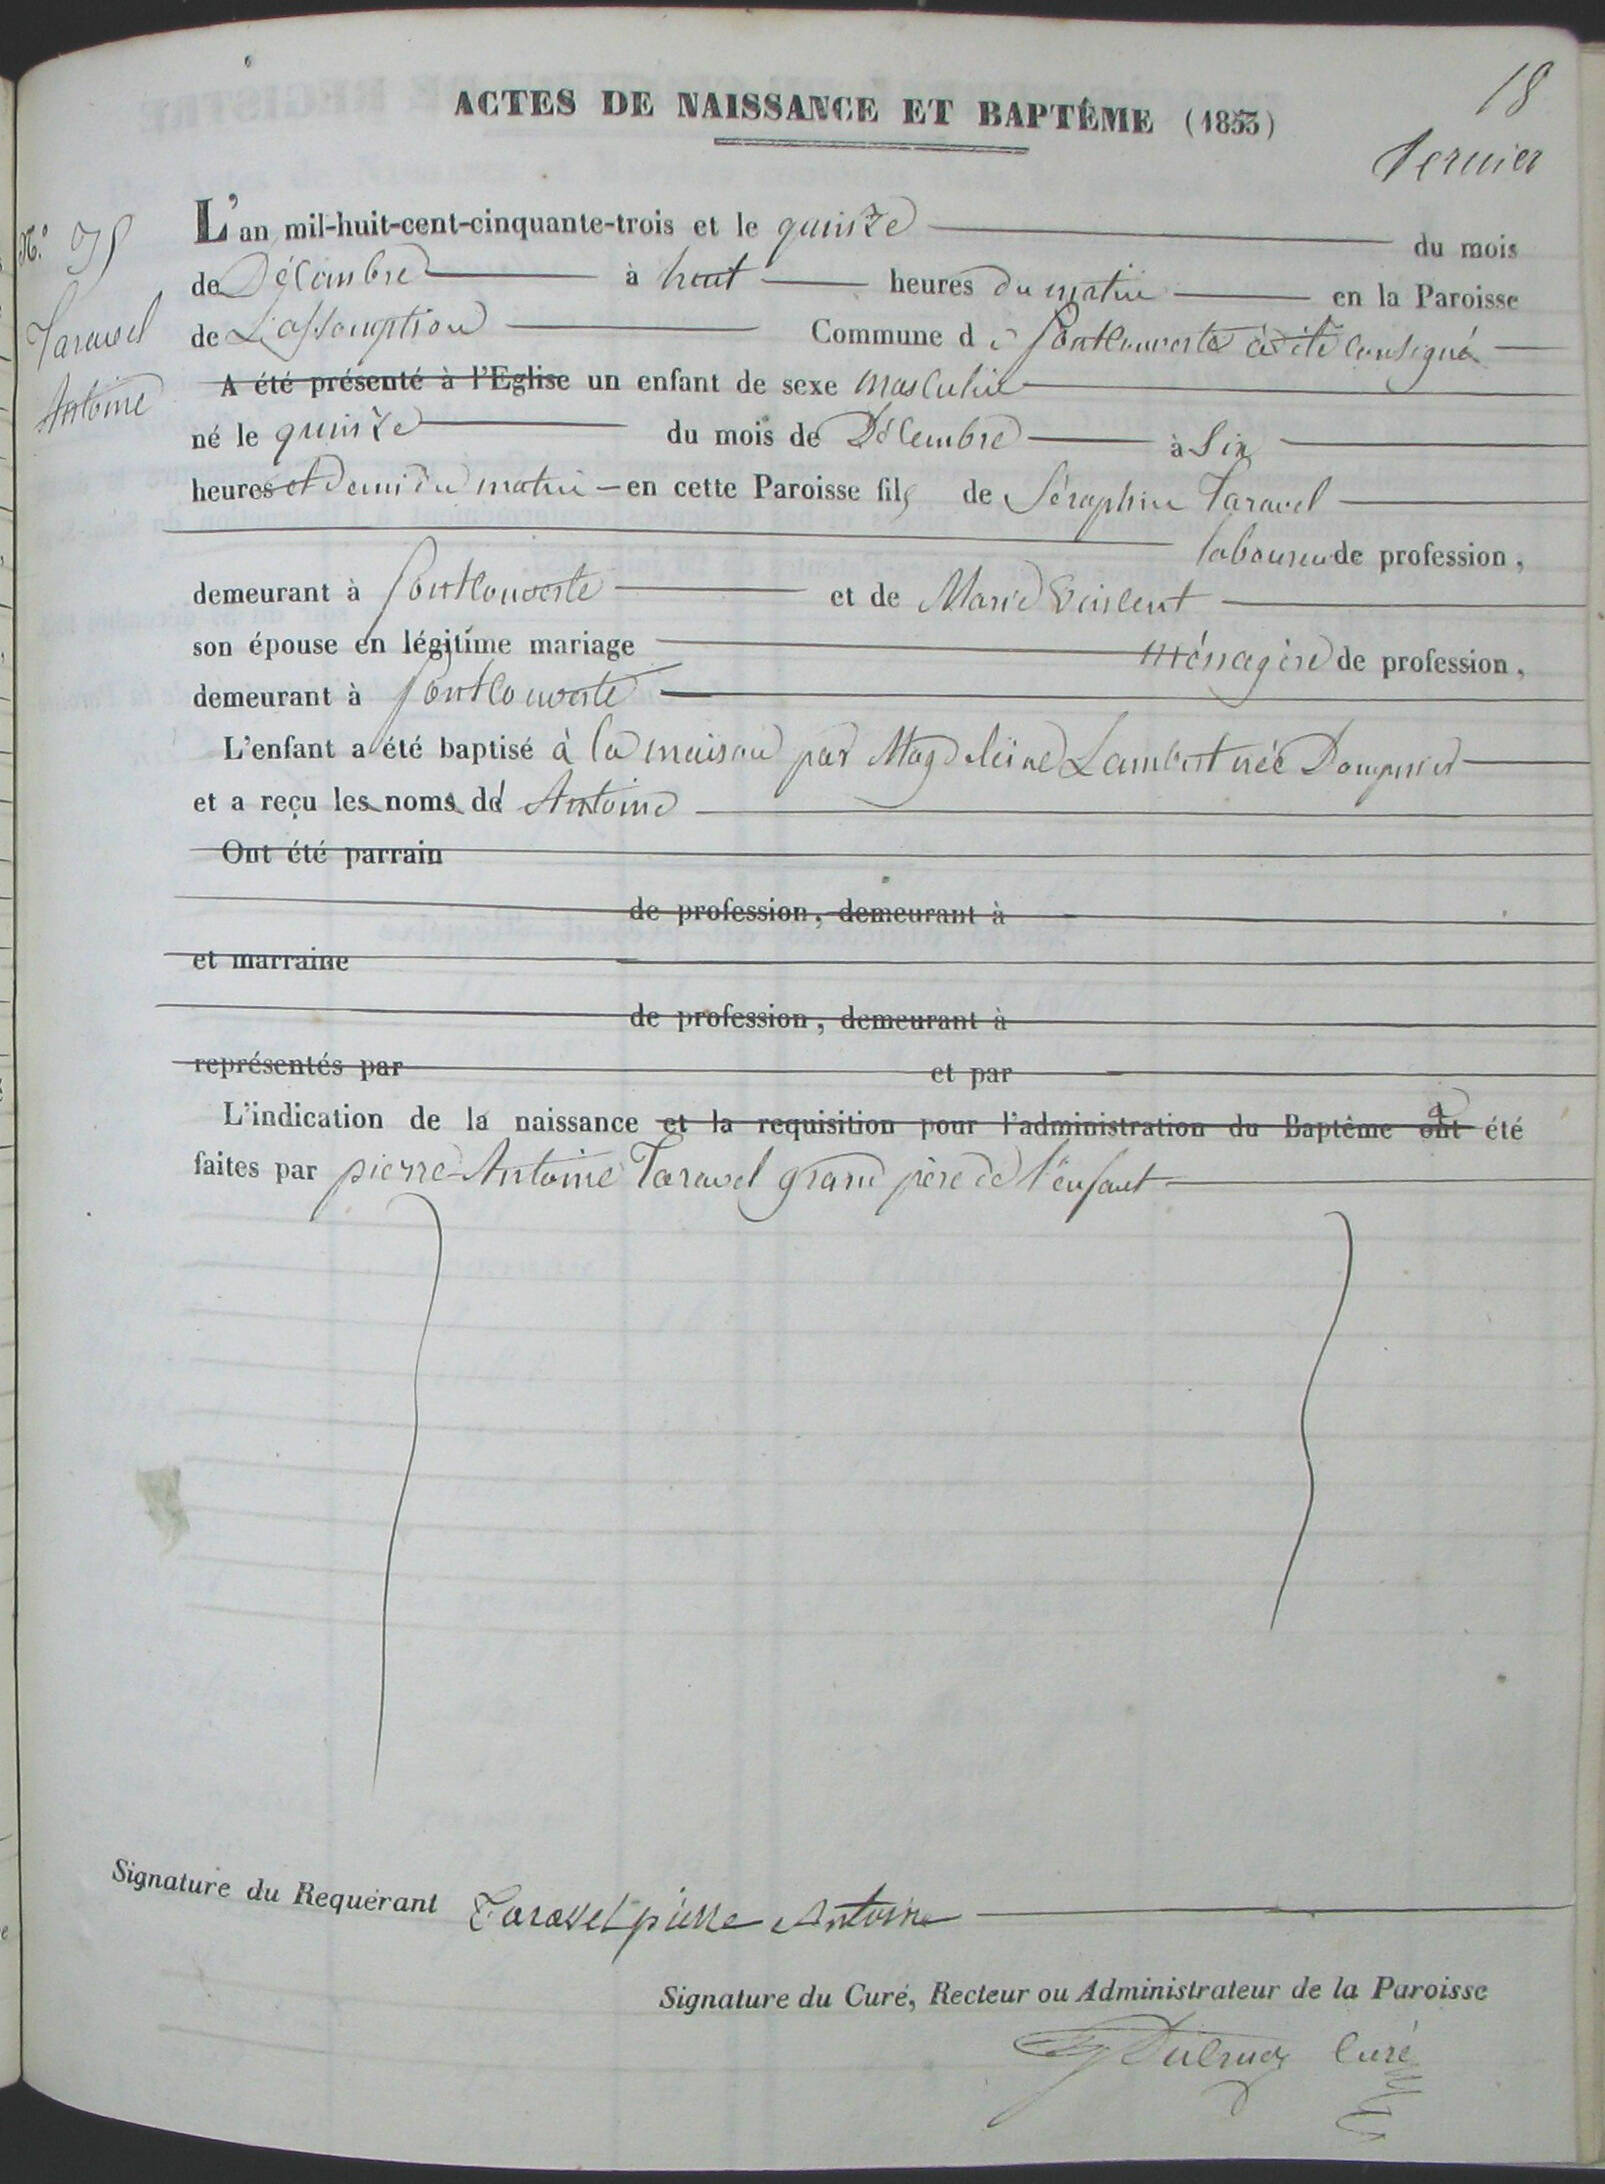 18
ACTES DE NAISSANCE ET BAPTÊME (1853)
N.° 35
Taravel
Antoine
L'an mil-huit-cent-cinquante-trois et le quinze du mois
de Décembre à huit heures du matin en la Paroisse
de L'assomption Commune de Pontcouverte à été consigné
A été présenté à l'Eglise un enfant de sexe masculin
né le quinze du mois de Décembre à Six
heures et demi du matin en cette Paroisse fils de Séraphin Taravel
laboureur de profession,
demeurant à fontcouverte et de Marie Vincent
son épouse en légitime mariage ménagère de profession,
demeurant à fontcouverte
L'enfant a été baptisé à la maison par Magdeleine Lambert née Dompnier
et a reçu les noms de Antoine
Ont été parrain
de profession, demeurant à
et marraine
de profession, demeurant à
représentés par et par
L'indication de la naissance et la requisition pour l'administration du Baptême ont a été
faites par pierre Antoine Taravel grand père de l'enfant
Signature du Requérant Taravel pierre Antoine
Signature du Curé, Recteur ou Administrateur de la Paroisse
Curé